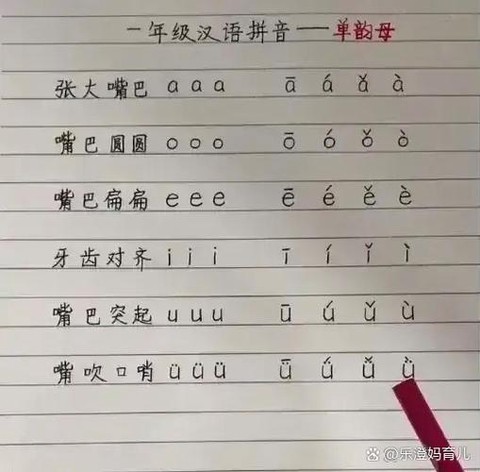 一年级汉语拼音——单韵母
张大嘴巴 a a a ā á ǎ à
嘴巴圆圆 o o o ō ó ǒ ò
嘴巴扁扁 e e e ē é ě è
牙齿对齐 i i i ī í ǐ ì
嘴巴突起 u u u ū ú ǔ ù
嘴吹口哨 ü ü ü ǖ ǘ ǚ ǜ
@乐澄妈育儿